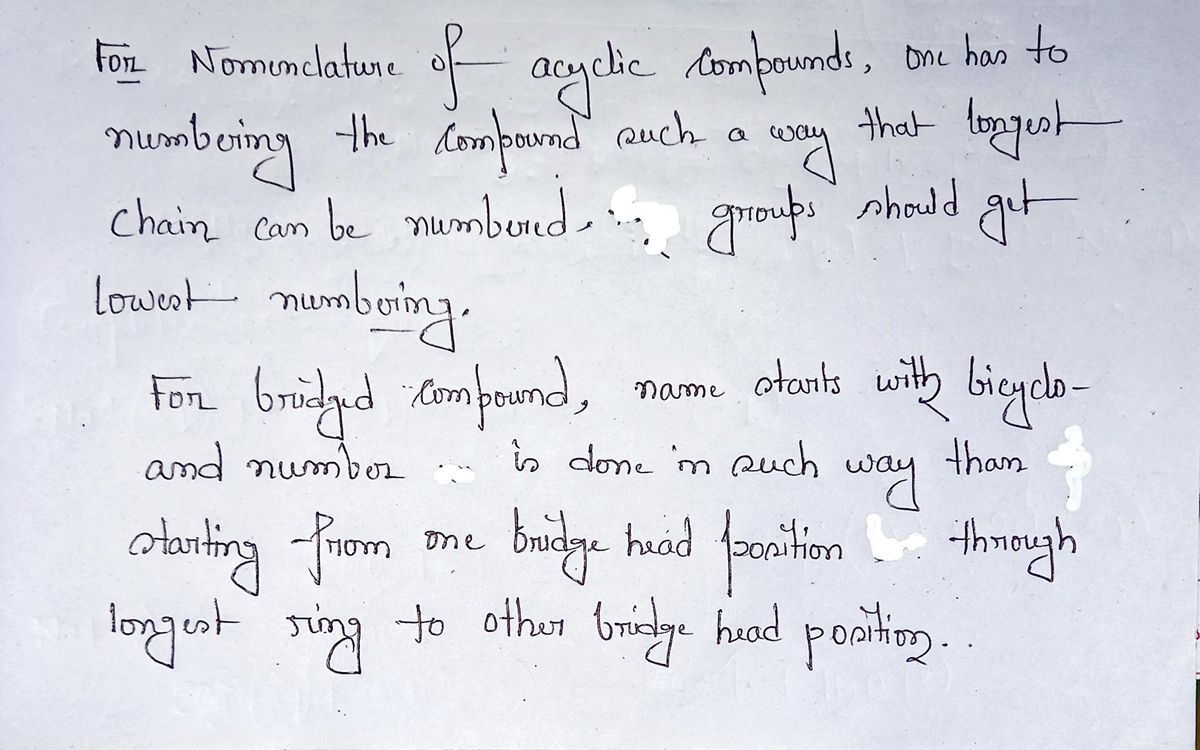 For Nomenclature of acyclic compounds, one has to
numbering the compound such a way that longest
chain can be numbered. groups should get
lowest numbering.
For bridged compound, name starts with bicyclo-
and number is done in such way than
starting from one bridge head position through
longest ring to other bridge head position..